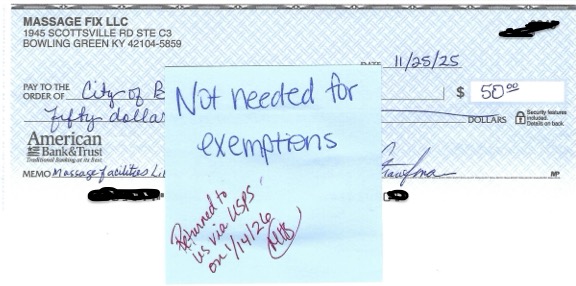 MASSAGE FIX LLC
1945 SCOTTSVILLE RD STE C3
BOWLING GREEN KY 42104-5859
DATE 11/25/25
PAY TO THE
ORDER OF City of B
$ 50 00
fifty dollar
DOLLARS
Security features
included.
Details on back.
American
Bank&Trust
Traditional Banking at its Best
MEMO Massage facilities Li
MP
Not needed for
exemptions
Returned to
us via USPS
on 1/14/26